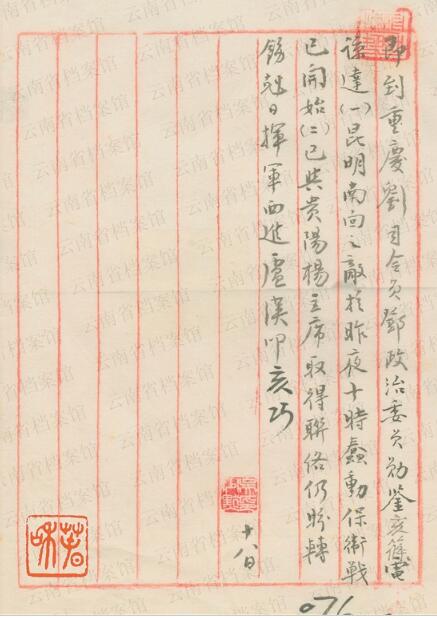 即到重慶劉司令員鄧政治委員勛鑒亥篠電
諒達(一)昆明南向之敵於昨夜十時蠢動保衛戰
已開始(二)已與貴陽楊主席取得聯絡仍盼轉
飭尅日揮軍西進盧漢叩亥巧
十八日
076
云南省档案馆